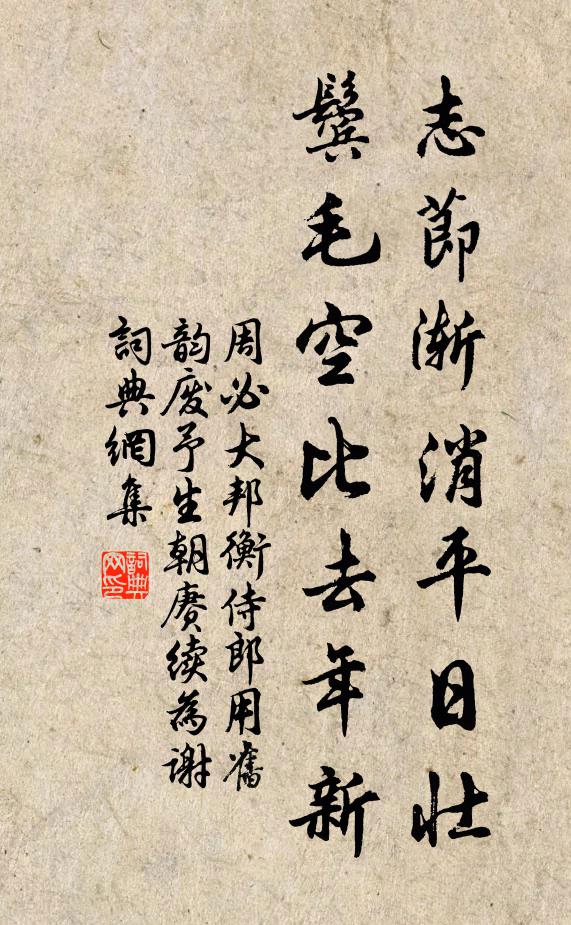 志節漸消平日壯
鬓毛空比去年新
周必大邦衡侍郎用舊
韵庋予生朝赓续為谢
詞典網集
詞典网印